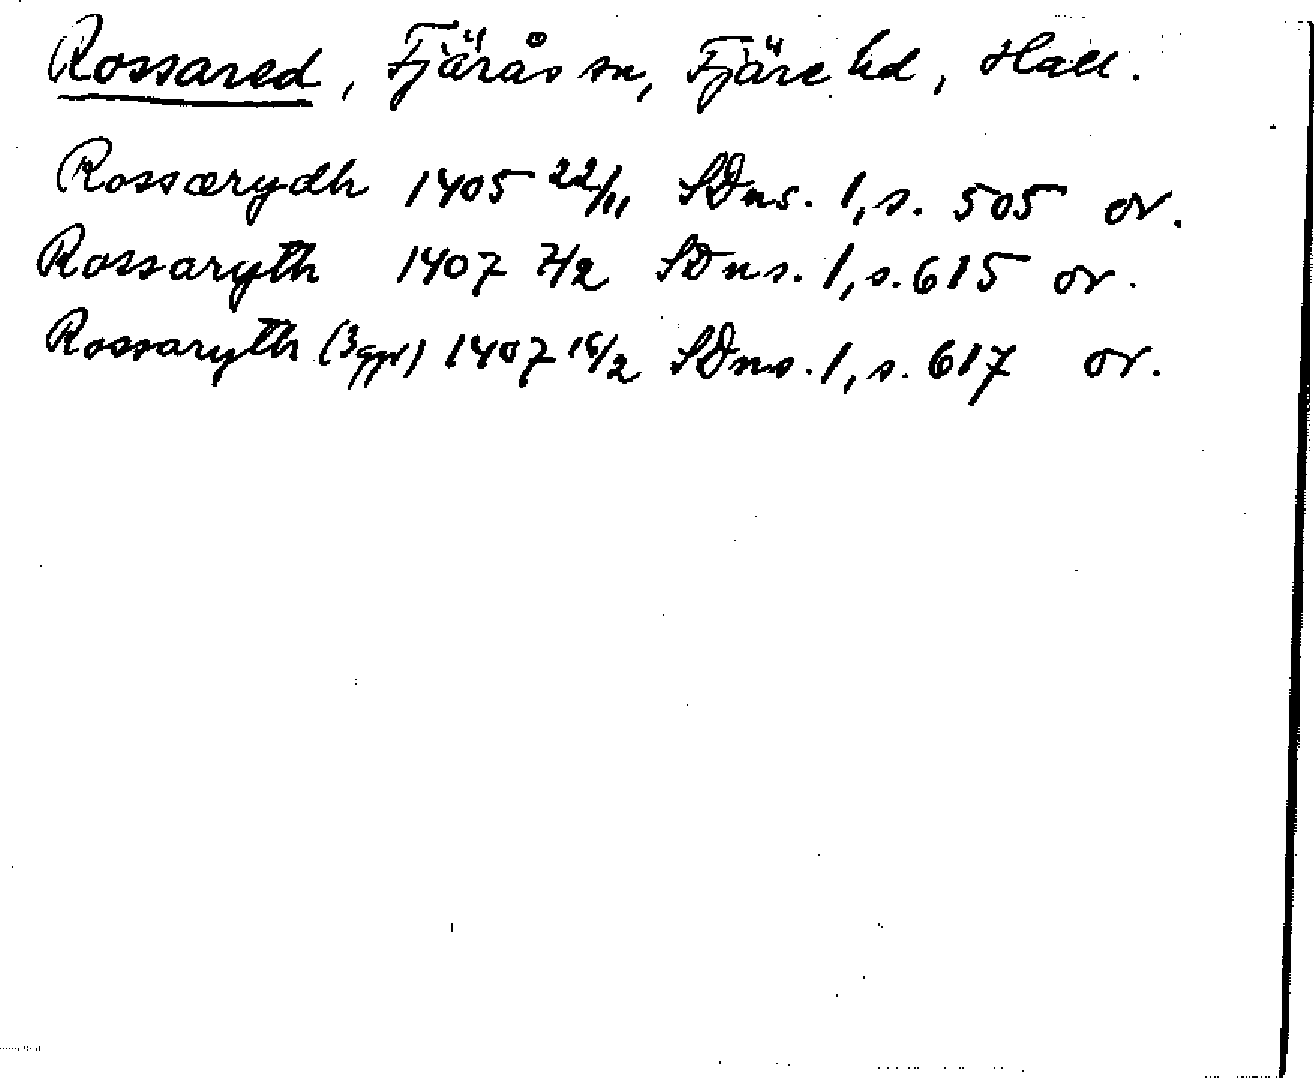 Rossared, Fjärås sn, Fjäre hd, Hall.
Rossærydh 1405 22/11 SDns. 1, s. 505 or.
Rossaryth 1407 7/2 SDns. 1, s. 615 or.
Rossaryth (3ggr) 1407 16/2 SDns. 1, s. 617 or.